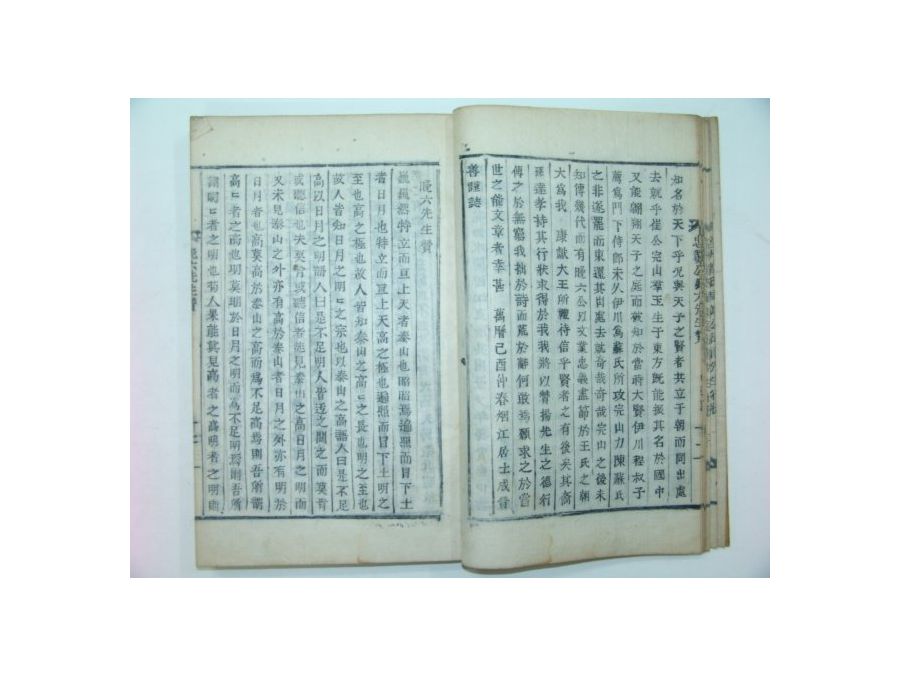 知名於天下乎況與天子之賢者共立于朝而同出處
去就乎崔公完山羣玉生于東方旣能振其名於國中
又能翺翔天子之庭而被知於當時大賢伊川程叔子
薦爲門下侍郎未久伊川爲蘇氏所攻完山力陳蘇氏
之非遂罷而東還其出處去就奇哉奇哉完山之後未
知傳幾代而有晚六公以文章忠義盡節於王氏之朝
大爲我 康獻大王所禮待信乎賢者之有後矣其裔
孫達孝持其行狀求得於我我將以贊揚先生之德行
傳之於無窮我拙於詩而荒於辭何敢焉願求之於當
世之能文章者幸甚 萬曆己酉仲春烟江居士成晋
善謹誌
晚六先生贊
巍巍然特立而亘上天者泰山也昭焉遍照而冐下土
者日月也特立而亘上天高之極也遍照而冐下土明之
至也高之極也故人皆知泰山之高之長也明之至也
故人皆知日月之明明之宗也以泰山之高語人曰是不足
高以日月之明語人曰是不足明人皆過之聞之而莫肯
或聽信也夫莫肯或聽信者能見泰山之高日月之明而
又未見泰山之外亦有高於泰山者日月之外亦有明於
日月者也莫高於泰山之高而爲不足高焉則吾所謂
高高者之高也明莫明於日月之明而爲不足明焉則吾所
謂明明者之明也苟人果能眞見高者之高明者之明則